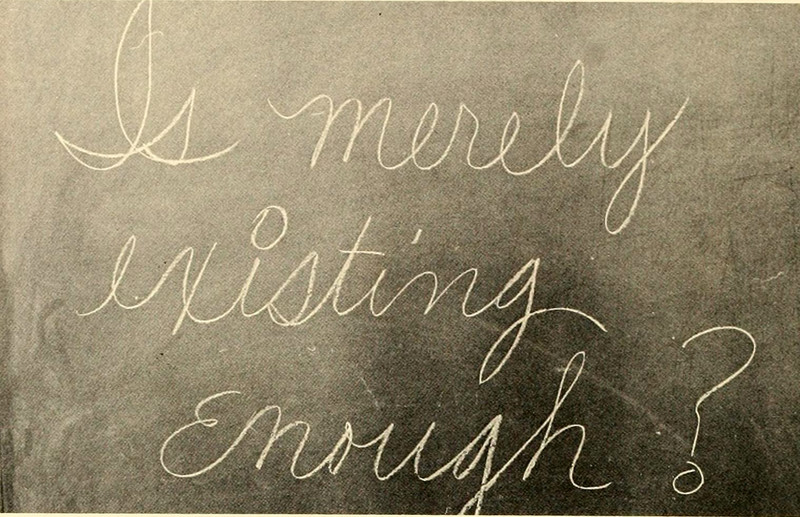 Is merely
existing
Enough?